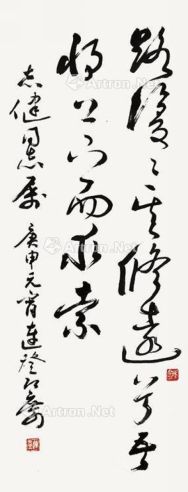 路漫〻其修遠兮吾
將上下而求索
志健同志属 庚申元宵連登
Artron.Net